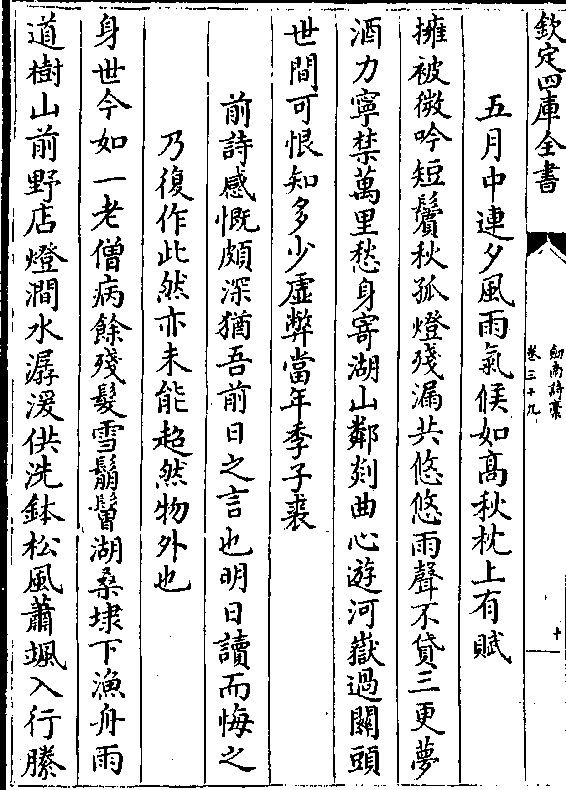 欽定四庫全書
劍南詩稾
卷三十九
十
五月中連夕風雨氣候如髙秋枕上有賦
擁被微吟短鬢秋孤燈殘漏共悠悠雨聲不貸三更夢
酒力寧禁萬里愁身寄湖山鄰剡曲心遊河嶽過關頭
世間可恨知多少虛弊當年季子裘
前詩感慨頗深猶吾前日之言也明日讀而悔之
乃復作此然亦未能超然物外也
身世今如一老僧病餘殘髮雪鬅鬙湖桑埭下漁舟雨
道樹山前野店燈澗水潺湲供洗鉢松風蕭颯入行縢